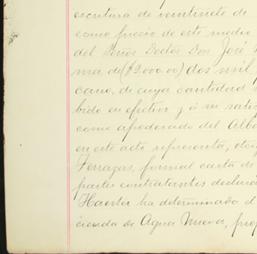 escritura de veintisiete de
como precio de este medio
del Señor Doctor Don José
ma de ($2000.00) dos mil
cano, de cuya cantidad
bido en efectivo y á su satis
como apoderado del Alba
en este acto representa, oto
Terrazas, formal carta de
partes contratantes declara
Haerter ha determinado
cienda de Agua Nueva, prop